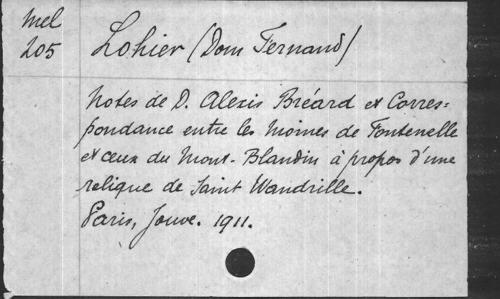 Mel
205
Lohier (Dom Fernand)
Notes de D. Alexis Bréard et Corres=
pondance entre les Moines de Fontenelle
et ceux du Mont-Blandin à propos d'une
relique de Saint Wandrille.
Paris, Jouve. 1911.